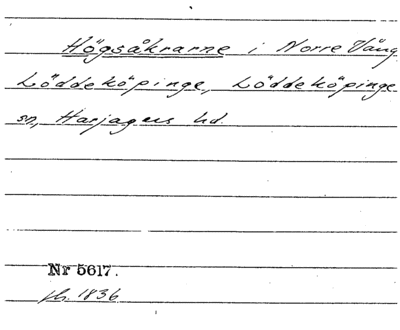 Högsåkrarne i Norre Vång,
Löddeköpinge, Löddeköpinge
sn, Harjagers hd.
Nr 5617.
fk. 1836